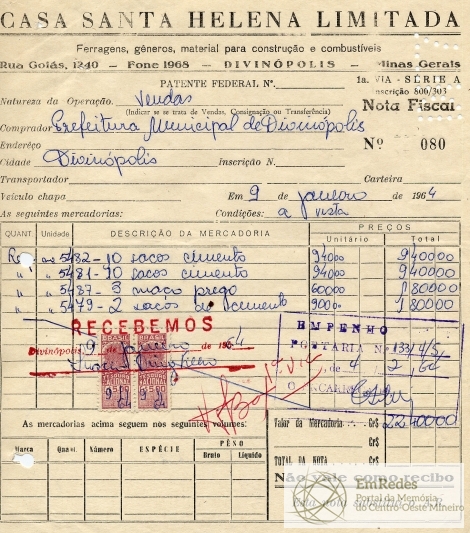 CASA SANTA HELENA LIMITADA
Ferragens, gêneros, material para construção e combustíveis
Rua Goiás, 1240 - Fone 1968 - DIVINÓPOLIS - Minas Gerais
PATENTE FEDERAL Nº.
1a. VIA - SÉRIE A
Inscrição 800/303
Nota Fiscal
Natureza da Operação. Vendas
(Indicar se se trata de Vendas, Consignação ou Transferência)
Comprador Prefeitura Municipal de Divinópolis
Enderêço
Nº 080
Cidade Divinópolis Inscrição N.
Transportador Carteira
Veículo chapa Em 9 de janeiro de 1964
As seguintes mercadorias: Condições: a vista
QUANT. Unidade DESCRIÇÃO DA MERCADORIA PREÇOS
Unitário Total
5482 - 10 sacos cimento 94000 940000
5481 - 10 sacos cimento 94000 940000
5487 - 3 maço prego 60000 180000
5479 - 2 sacos de cimento 90000 180000
RECEBEMOS
Divinópolis, 9 de janeiro de 1964
BRASIL
EMPENHO
PORTARIA N. 133/4/5/
4 2 64
As mercadorias acima seguem nos seguintes volumes:
Marca Quant. Número ESPÉCIE PÊSO
Bruto Líquido
Valor da Mercadoria Cr$ 2240000
Cr$
TOTAL DA NOTA Cr$
Não vale como recibo
EmRedes
Portal da Memória
do Centro-Oeste Mineiro